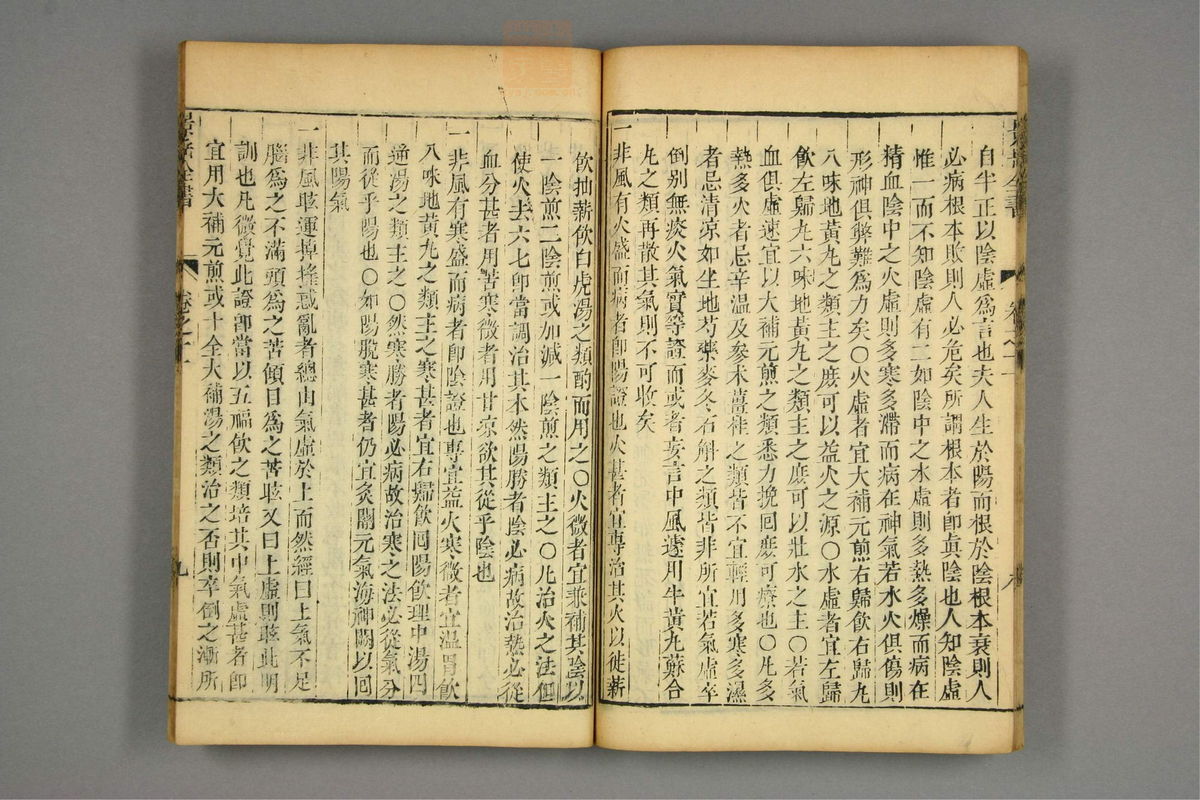 自半正以陰虛爲言也夫人生於陽而根於陰根本衰則人
必病根本敗則人必危矣所謂根本者卽眞陰也人知陰虛
惟一而不知陰虛有二如陰中之水虛則多熱多燥而病在
精血陰中之火虛則多寒多滯而病在神氣若水火俱傷則
形神俱弊難爲力矣○火虛者宜大補元煎右歸飲右歸丸
八味地黃丸之類主之庶可以益火之源○水虛者宜左歸
飲左歸丸六味地黃丸之類主之庶可以壯水之主○若氣
血俱虛速宜以大補元煎之類悉力挽回庶可療也○凡多
熱多火者忌辛溫及參术薑桂之類皆不宜輕用多寒多濕
者忌清涼如生地芍藥麥冬石斛之類皆非所宜若氣虛卒
倒別無痰火氣實等證而或者妄言中風遽用牛黃丸蘇合
丸之類再散其氣則不可收矣
一非風有火盛而病者卽陽證也火甚者宜專治其火以徙薪
飲抽薪飲白虎湯之類酌而用之○火微者宜兼補其陰以
一陰煎二陰煎或加減一陰煎之類主之○凡治火之法但
使火去六七卽當調治其本然陽勝者陰必病故治熱必從
血分甚者用苦寒微者用甘涼欲其從乎陰也
一非風有寒盛而病者卽陰證也專宜益火寒微者宜溫胃飲
八味地黃丸之類主之寒甚者宜右歸飲回陽飲理中湯四
逆湯之類主之○然寒勝者陽必病故治寒之法必從氣分
而從乎陽也○如陽脫寒甚者仍宜灸關元氣海神闕以回
其陽氣
一非風眩運掉搖惑亂者總由氣虛於上而然經曰上氣不足
腦爲之不滿頭爲之苦傾目爲之苦眩又曰上虛則眩此明
訓也凡微覺此證卽當以五福飲之類培其中氣虛甚者卽
宜用大補元煎或十全大補湯之類治之否則卒倒之漸所
景岳全書
卷之十一
九